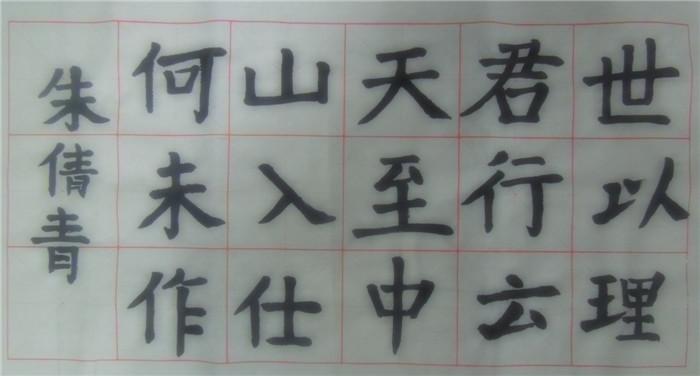 世以理
君行云
天至中
山入仕
何未作
朱倩青